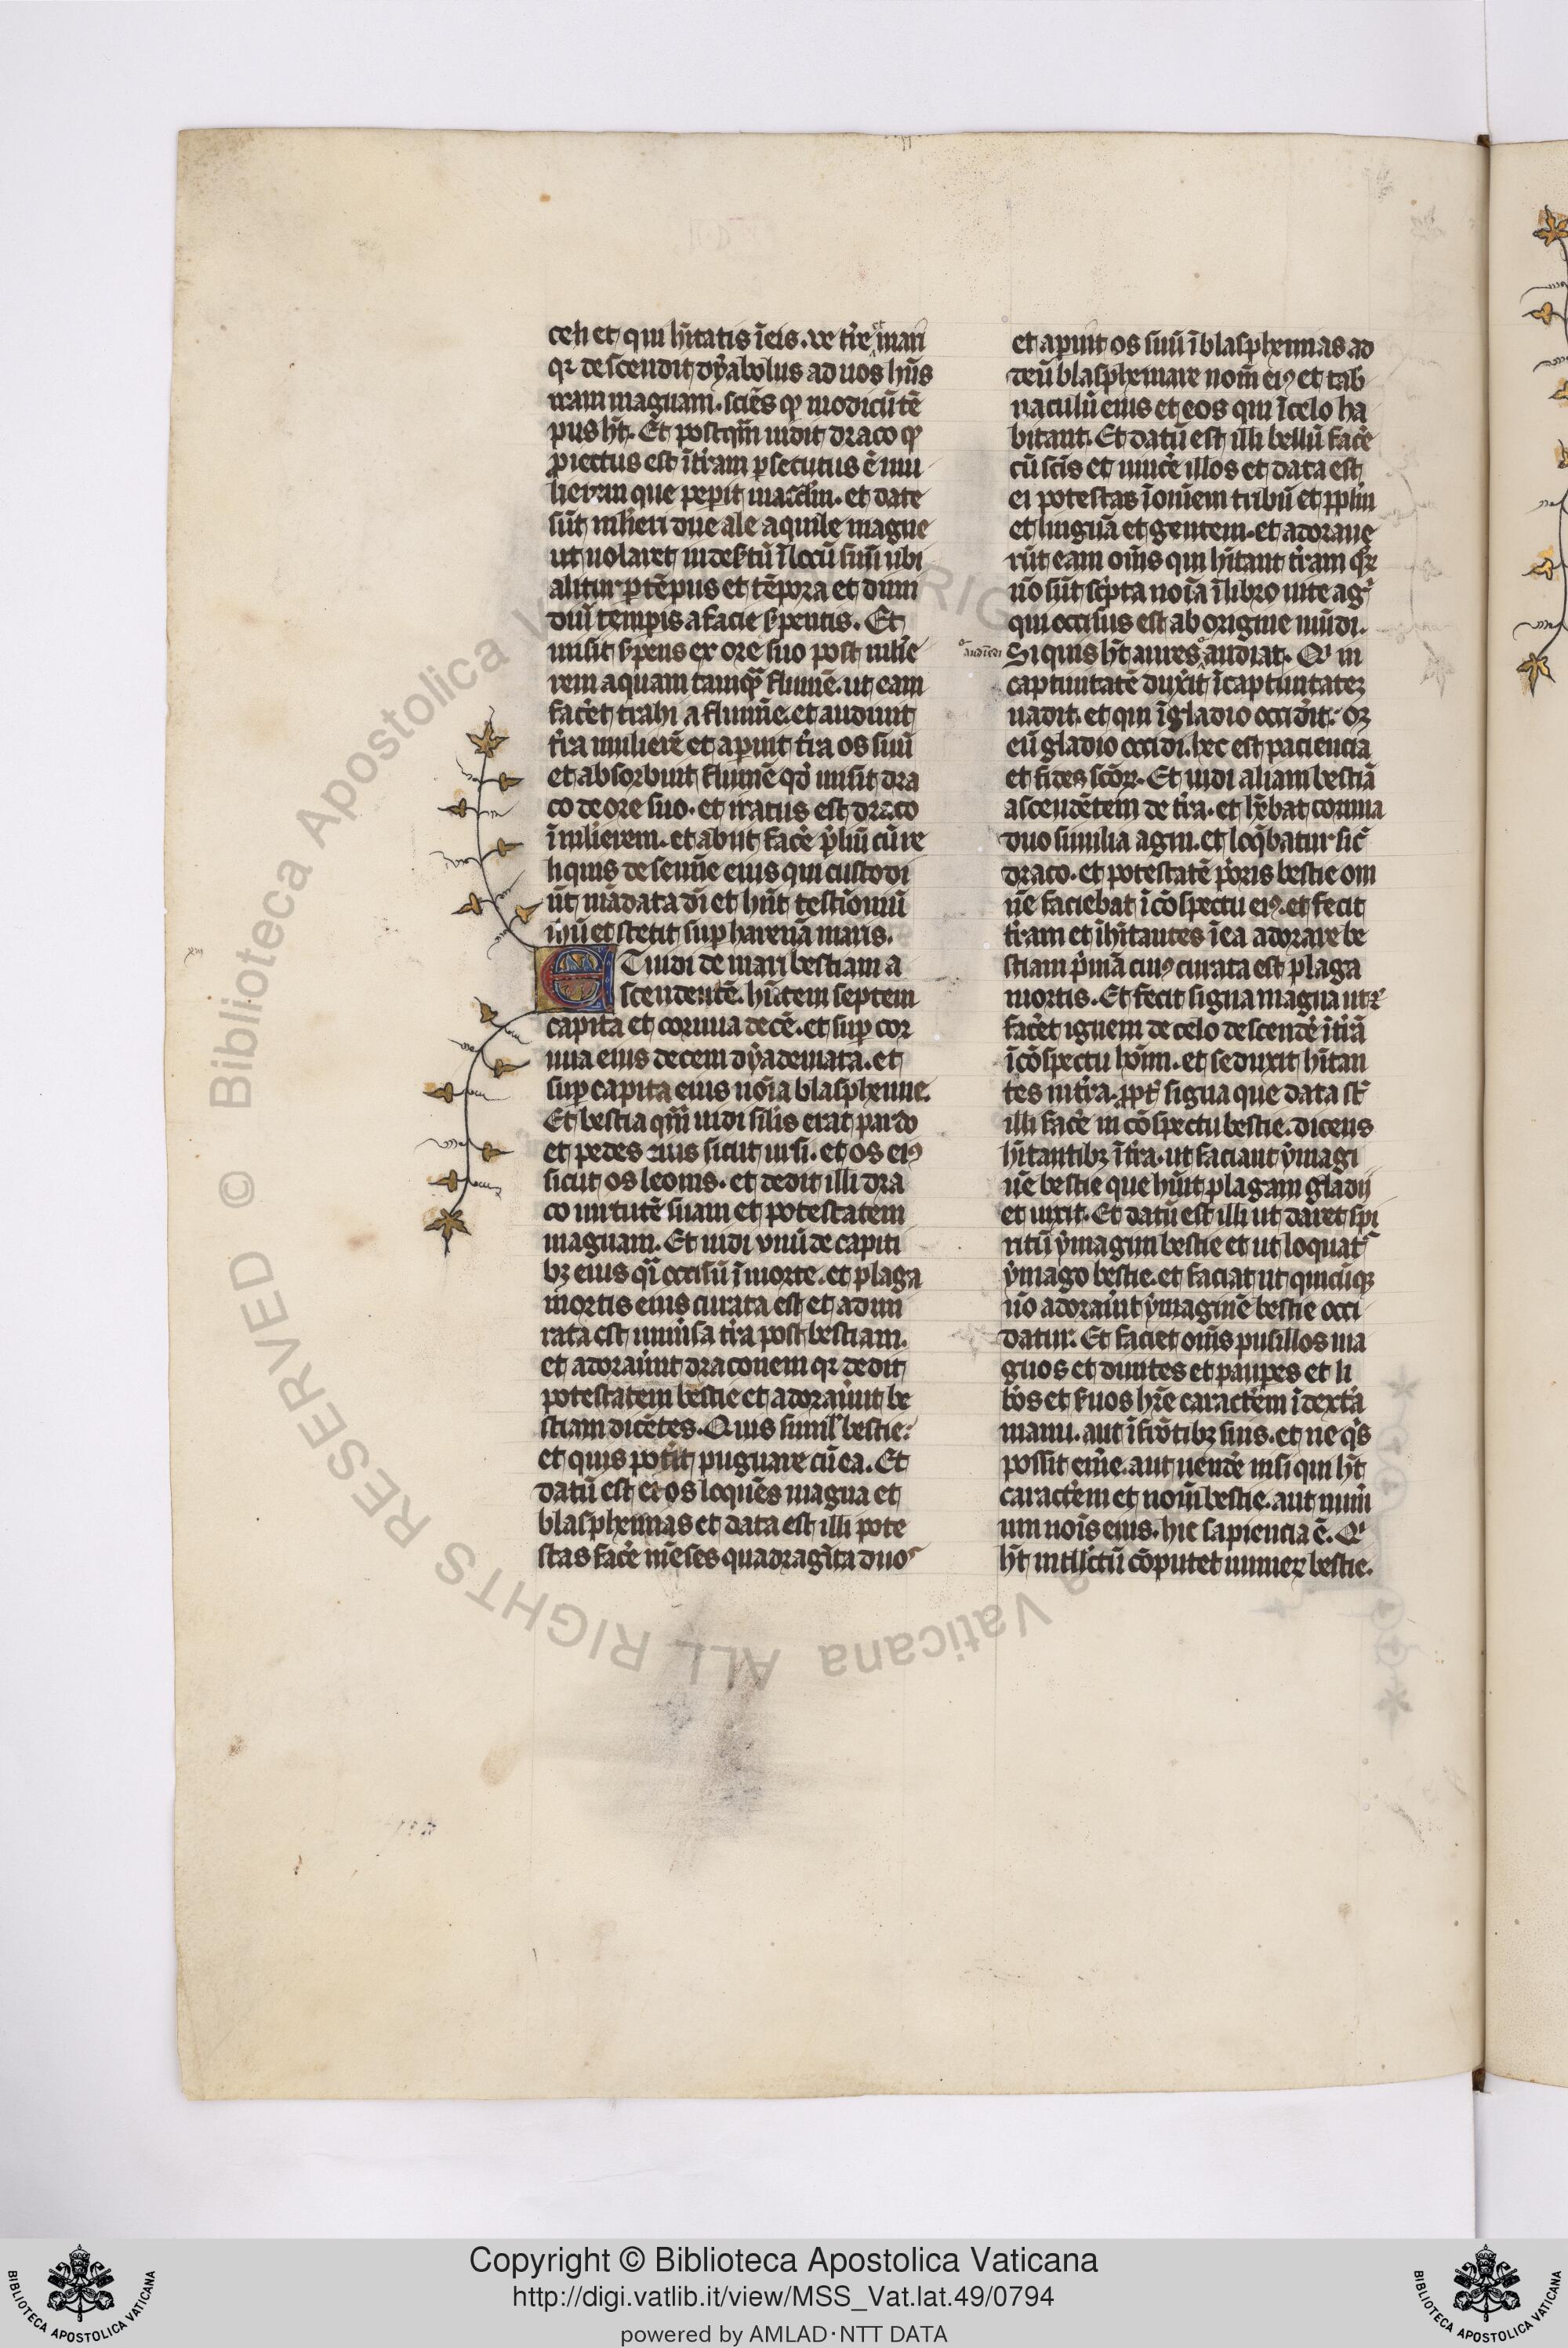 celi et qui hītatis ī eis. ve tr̄e et mari
qꝛ descendit dyabolus ad uos hn̄s
iram magnam. sciēs ꝙ modicū tē
pus ht̄. Et postqm̄ uidit draco ꝙ
ꝓiectus est ī tr̄am ꝑsecutus ē mu
lierem que peperit mascl̄m. et date
sūt ml̄ieri due ale aquile magne
ut uolaret in desr̄tū ī locū suū ubi
alitur ꝑ tēpus et tēpora et dimi
diū tempis a facie ẜpentis. Et
misit ẜpens ex ore suo post mlīe
rem aquam tamqᷓ flumē. ut eam
fac̄et trahi a flumīe. et adiuuit
tr̄a mulierē et aperuit tr̄a os suū
et absorbuit flumē qd̄ misit dra
co de ore suo. et iratus est draco
ī mlierem. et abiit fac̄e p̄liū cū re
liquis de semīe eius qui custodi
ūt mādata dī et hn̄t testīoniū
ihū et stetit suꝑ harenā maris.
ET uidi de mari bestiam a
scendentē. hn̄tem septem
capita et cornua decē. et suꝑ cor
nua eius decem dyademata. et
suꝑ capita eius noīa blasphemie.
Et bestia qm̄ uidi sīlis erat pardo
et pedes eius sicut ursi. et os eiꝰ
sicut os leonis. et dedit illi dra
co uirtutē suam et potestatem
magnam. Et uidi unū de capiti
bꝫ eius qͥ occisū ī morte. et plaga
mortis eius curata est et admi
rata est uniūsa tr̄a post bestiam.
et adorauūt draconem qꝛ dedit
potestatem bestie et adorauūt be
stiam dicētes. Quis simil̄ bestie.
et quis pot̄it pugnare cū ea. Et
datū est ei os loquēs magna et
blasphemias et data est illi pote
stas fac̄e mēses quadragīta duos
et aperuit os suū ī blasphemias ad
deū blasphemare nom̄ eiꝰ et tab
naculū eius et eos qui ī celo ha
bitant. Et datū est illi bellū fac̄e
cū sc̄is et uinc̄e illos et data est
ei potestas ī om̄em tribū et ppl̄m
et linguā et gentem. et adoraue
rūt eam om̄s qui hītant tr̄am qꝝ
nō sūt sc̄pta noīa ī libro uite agͥ
qui occisus est ab origine mūdi.
audiēdi
Si quis ht̄ aures audiat. Qͥ in
captiuitatē duxit ī captiuitateꝫ
uadit. et qui ī gladio occidit. oꝫ
eū gladio occidi. hec est paciencia
et fides sc̄oꝝ. Et uidi aliam bestiā
ascendētem de tr̄a. et hēbat cornua
duo similia agni. et loq̄batur sic̄
draco. et potestatē p̄oris bestie om
nē faciebat ī cōspectu eiꝰ. et fecit
tr̄am et īhītantes ī ea adorare be
stiam p̄mā cuiꝰ curata est plaga
mortis. Et fecit signa magna utꝫ
fac̄et ignem de celo descend̄e ī tr̄ā
ī cōspectu hoīm. et seduxit hītan
tes in tr̄a. ꝓpt̄ signa que data st̄
illi fac̄e in cōspectu bestie. dicens
hītantibꝫ ī tr̄a. ut faciant ymagi
nē bestie que hūit plagam gladij
et uixit. Et datū est illi ut daret spi
ritū ymagini bestie et ut loquat᷑
ymago bestie. et faciat ut quicūqꝫ
nō adorauūt ymaginē bestie occi
datur. Et faciet om̄s pusillos ma
gnos et diuites et paupes et li
bōs et ẜuos hr̄e caractēm ī dextā
manu. aut ī frōtibꝫ suis. et ne qͥs
possit em̄e. aut uend̄e nisi qui ht̄
caractēm et nom̄ bestie. aut num̄
um noīs eius. hic sapiencia ē. Qͥ
ht̄ intllc̄tū cōputet numeꝝ bestie.
© Biblioteca Apostolica Vaticana ALL RIGHTS RESERVED
Copyright © Biblioteca Apostolica Vaticana
http://digi.vatlib.it/view/MSS_Vat.lat.49/0794
powered by AMLAD·NTT DATA
BIBLIOTECA APOSTOLICA VATICANA
BIBLIOTECA APOSTOLICA VATICANA